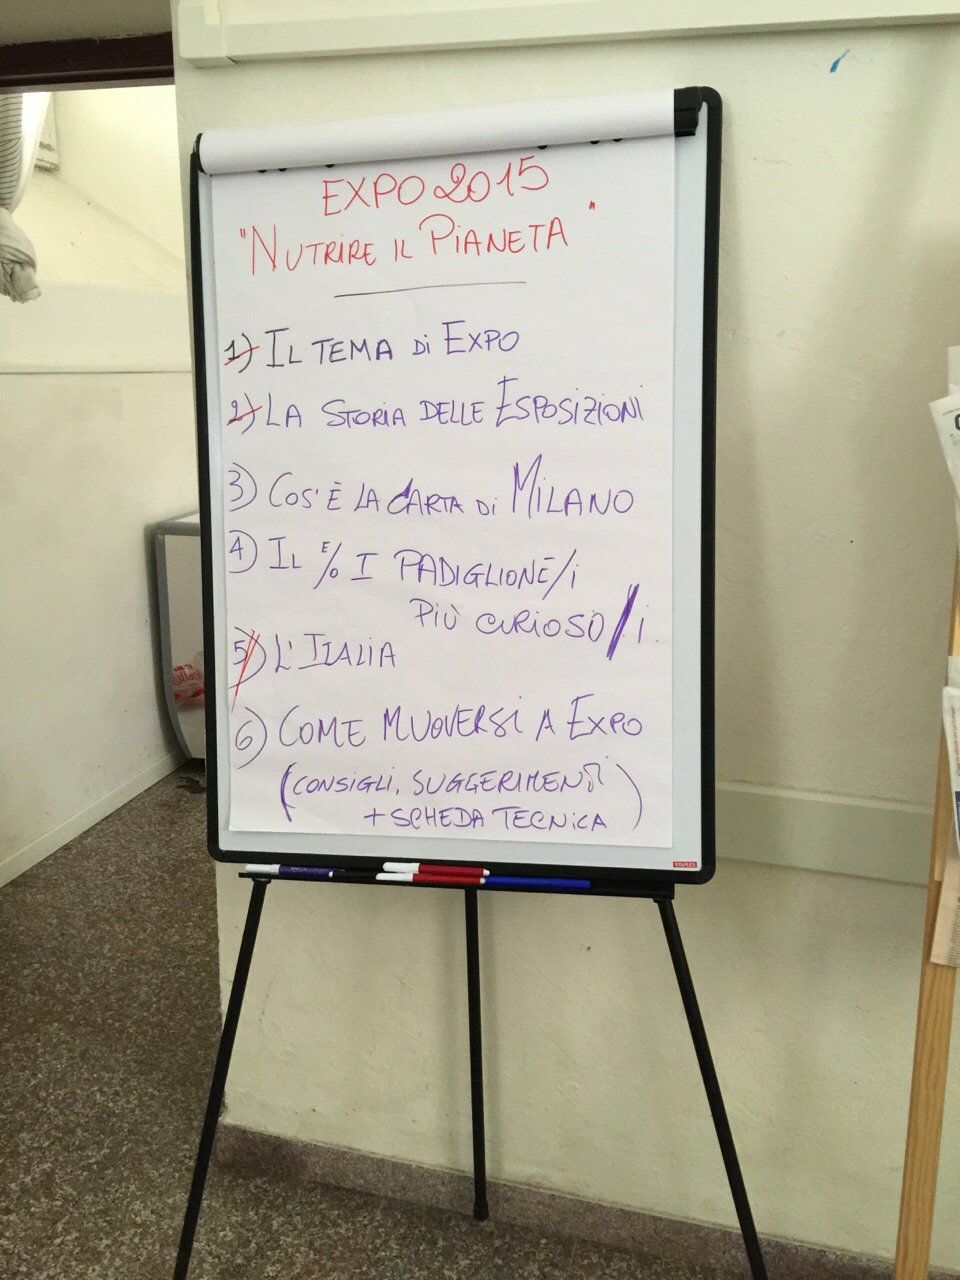 EXPO 2015
"NUTRIRE IL PIANETA"
1) IL TEMA DI EXPO
2) LA STORIA DELLE ESPOSIZIONI
3) COS'È LA CARTA DI MILANO
4) IL E/O I PADIGLIONE/I
PIÙ CURIOSO/I
5) L'ITALIA
6) COME MUOVERSI A EXPO
(CONSIGLI, SUGGERIMENTI
+ SCHEDA TECNICA)
STAPLES